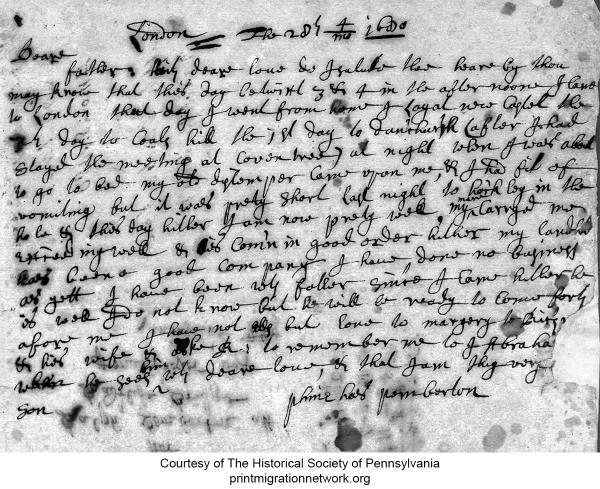 London The 28th 4/mo 1680
Deare
father, with deare love do I salute thee heare by thou
may know that this day betwixt 3 & 4 in the after noone I came
to London that day I went from home I lay at new Castel the
day to Coals hill the 7th day to (after I had
stayed the meeting at Coventree) at night when I was about
to go to bed my old distemper Came upon me, & I had a fit of
vomiting but it was prety short last night to in the
& this day hither I am now prety well, my mare Carryed me
well & is Com'n in good order hither my landlord
has been a good company I have done no business
as yett I have been with father since I Came hither he
is well I do not know but he will be ready to come forth
afore me I have not but love to margery
& his wife & to remember me to Abraha
when he sees him with deare love, & that I am thy very
son
phinehas pemberton
Courtesy of The Historical Society of Pennsylvania
printmigrationnetwork.org